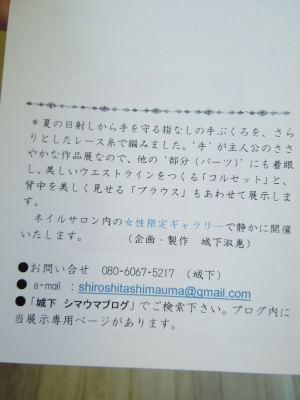 ＊夏の日射しから手を守る指なしの手ぶくろを、さら
りとしたレース糸で編みました。'手'が主人公のささ
やかな作品展なので、他の'部分（パーツ）'にも着眼
し、美しいウエストラインをつくる「コルセット」と、
背中を美しく見せる「ブラウス」もあわせて展示しま
す。
ネイルサロン内の女性限定ギャラリーで静かに開催
いたします。　（企画・製作　城下淑恵）
●お問い合せ　080-6067-5217　（城下）
● e-mail ：shiroshitashimauma@gmail.com
●「城下 シマウマブログ」でご検索下さい。ブログ内に
当展示専用ページがあります。